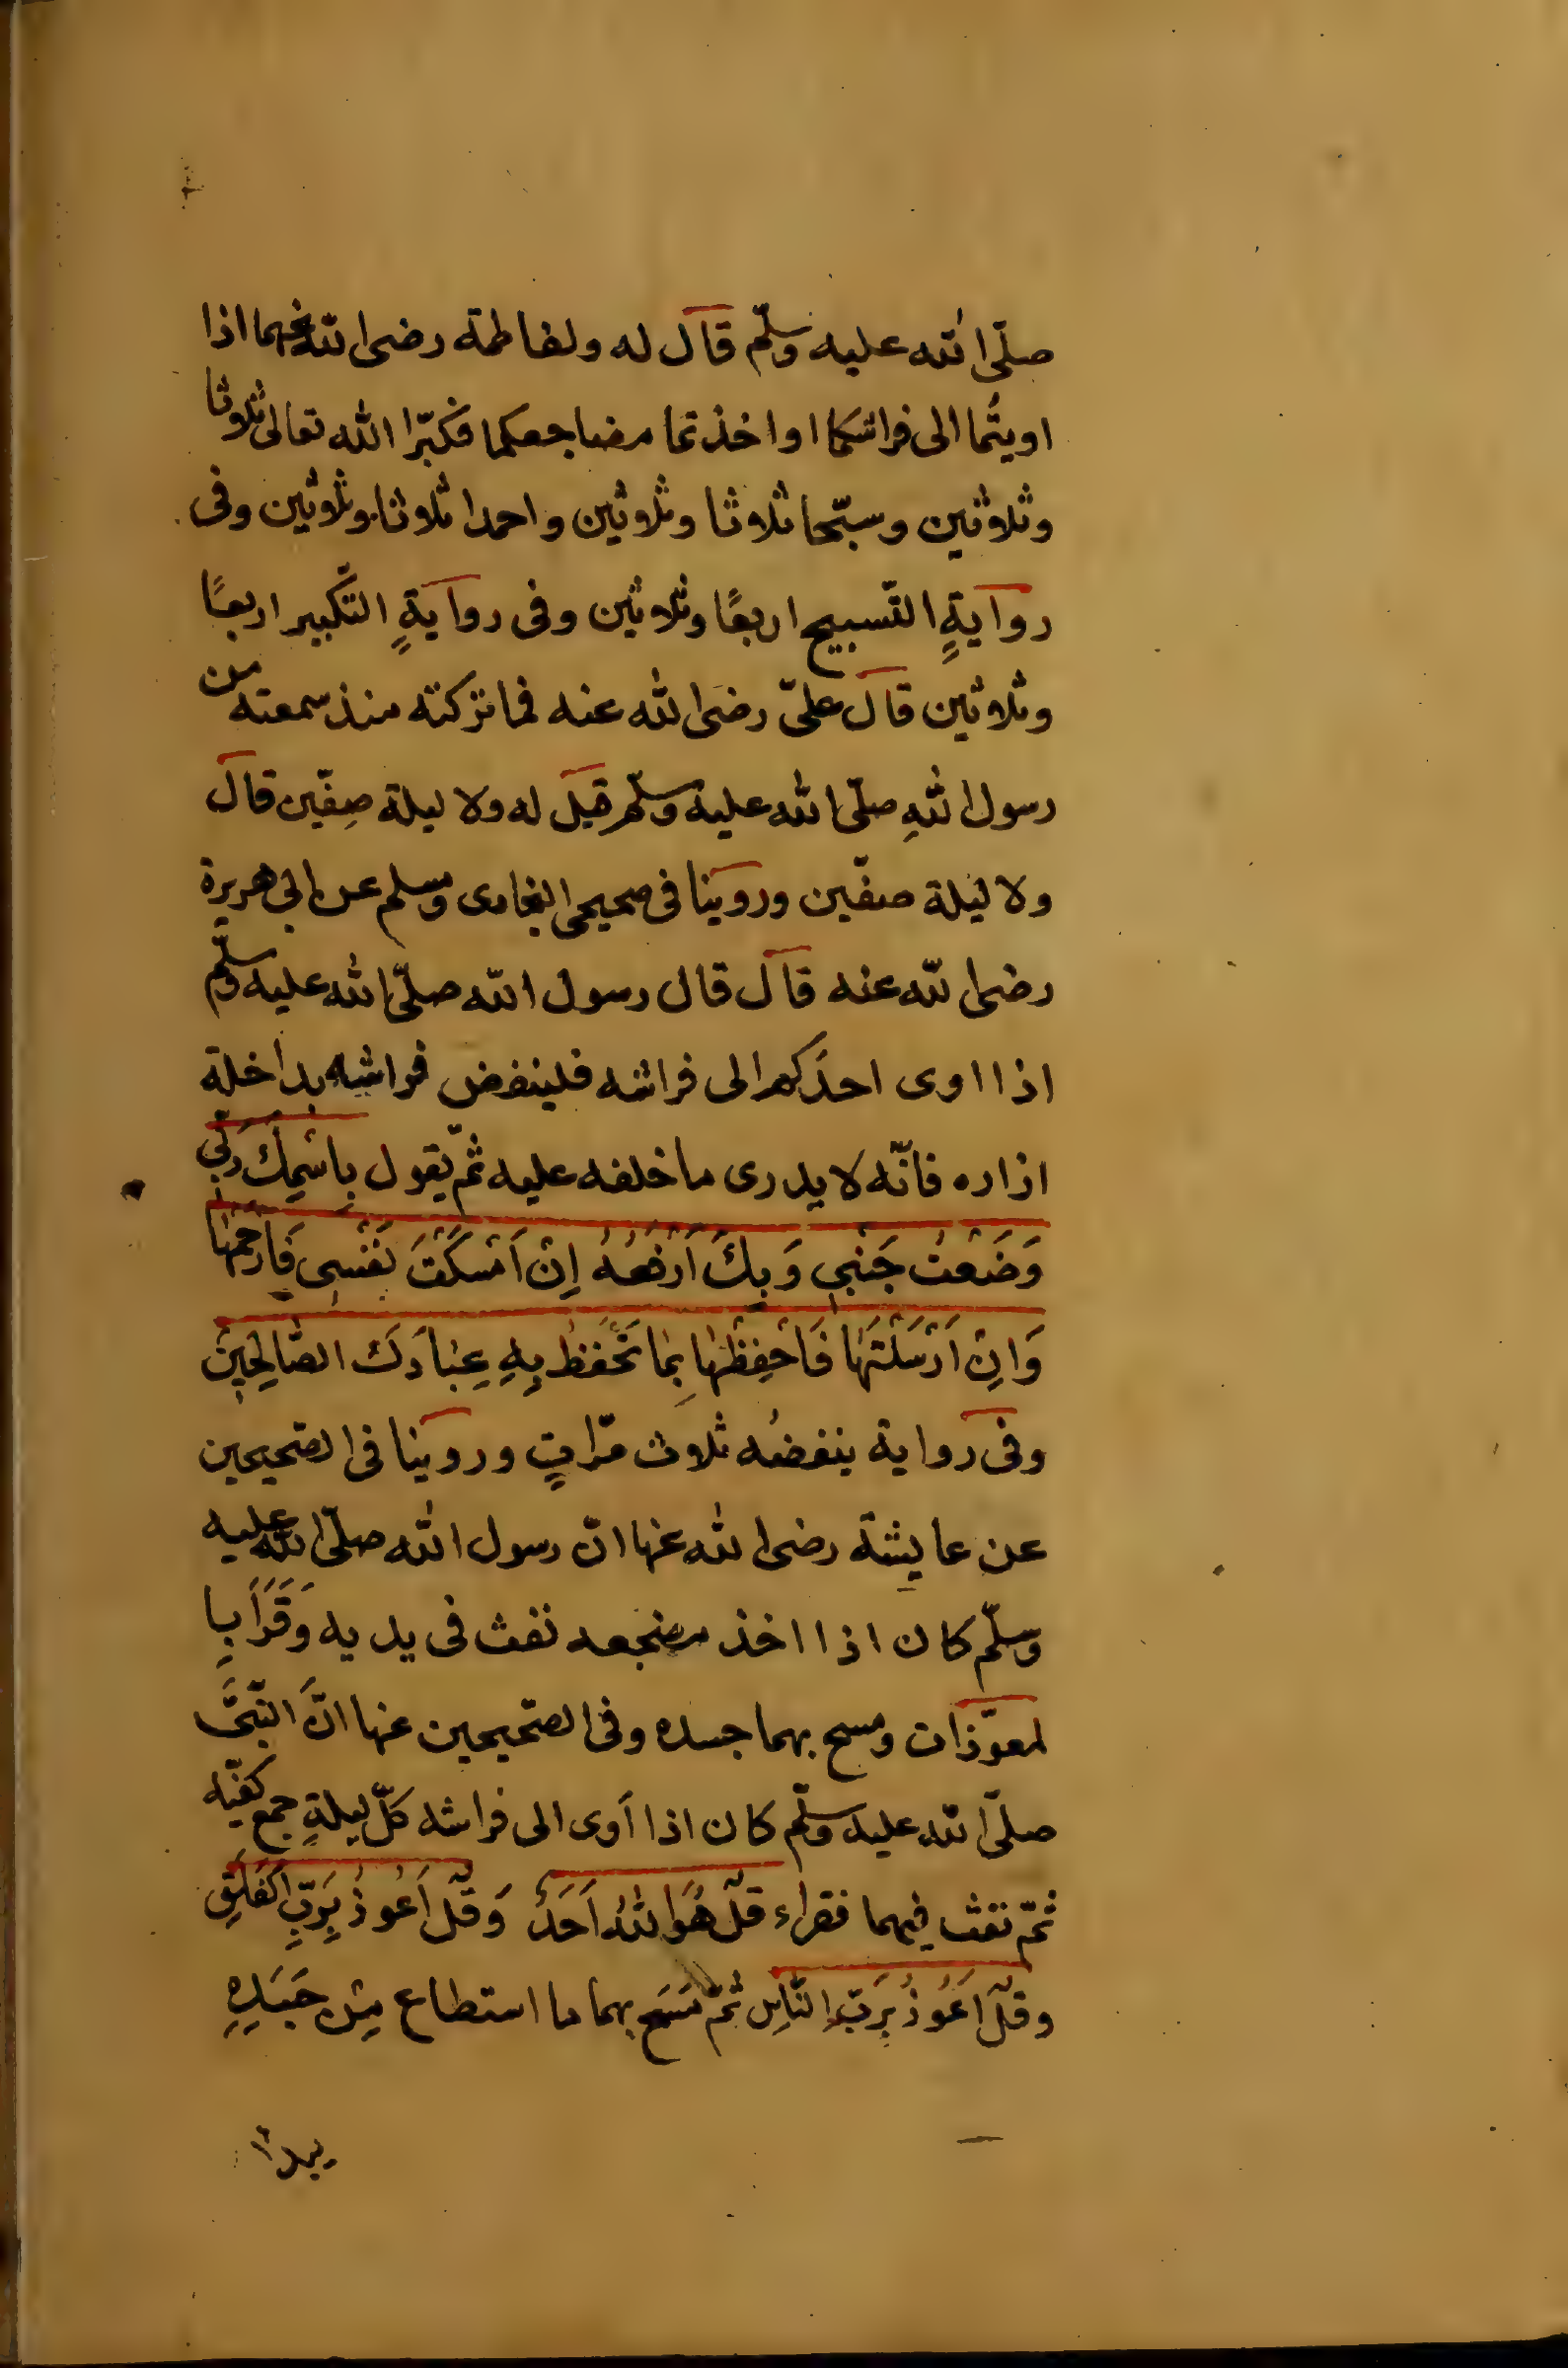 صلّى الله عليه وسلّم قال له ولفاطمة رضى الله عنهما اذا
اويتُما الى فراشكما او اخذتما مضاجعكما فكبّرا الله تعالى ثلاوثا
وثلاوثين وسبّحا ثلاوثا وثلاوثين واحمدا ثلاوثا وثلاوثين وفى
روايةٍ التّسبيح اربعًا وثلاوثين وفى روايةٍ التّكبير اربعًا
وثلاوثين قال علىّ رضى الله عنه فما تركته منذ سمعته من
رسول اللهِ صلّى الله عليه وسلّم قيل له ولا ليلة صِفّين قال
ولا ليلة صفّين وروينا فى صحيحى البخارى ومسلم عن ابى هريرة
رضى الله عنه قال قال رسول الله صلّى الله عليه وسلّم
اذا اوى احدَكم الى فراشه فلينفض فراشه بداخلة
ازاره فانّه لا يدرى ما خلفه عليه ثمّ يقول بِاسْمِكَ رَبّى
وَضَعْتُ جَنْبِى وَبِكَ اَرْفَعُهُ اِنْ اَمْسَكْتَ نَفْسِى فَارْحَمْهَا
وَاِنْ اَرْسَلْتَهَا فَاحْفِظْهَا بِمَا تَحْفَظُ بِهِ عِبَادَكَ الصَّالِحِينَ
وفى رواية ينفضُه ثلاوث مرّاتٍ وروينا فى الصّحيحين
عن عايشة رضى الله عنها انّ رسول الله صلّى الله عليه
وسلّم كان اذا اخذ مضجعه نفث فى يديه وَقَرَأَ بِا
لمعوّذات ومسح بهما جسده وفى الصّحيحين عنها انَّ النّبىَّ
صلّى الله عليه وسلّم كان اذا أوى الى فراشه كلّ ليلةٍ جمع كفّيه
ثمّ نفث فيهما فقراء قلْ هُوَ اللهُ اَحَدٌ وَقُلْ اَعُوذُ بِرَبِّ الْفَلَقِ
وقلْ اَعُوذُ بِرَبِّ النَّاسِ ثمّ مَسَحَ بهما ما استطاع مِنْ جَسَدِهِ
يبدأ